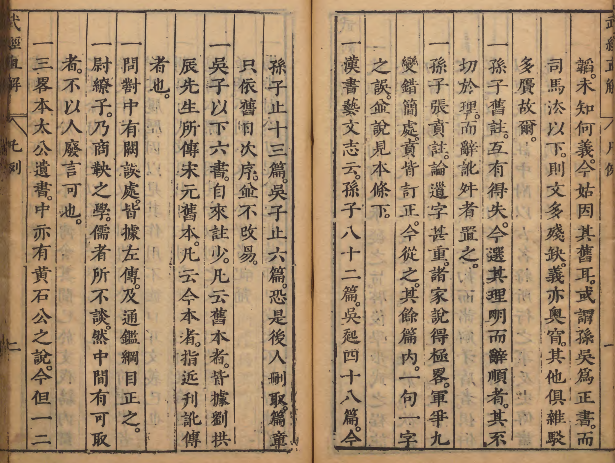 韜。未知何義。今姑因其舊耳。或謂孫吳為正書。而
司馬法以下。則文多殘缺。義亦奧窅。其他俱雜駁
多贋故爾。
一孫子舊註。互有得失。今選其理明而辭順者。其不
切於理。而辭訛舛者置之。
一孫子張賁註。論遺字甚重。諸家說得極畧。軍爭九
變錯簡處。賁皆訂正。今從之。其餘篇內。一句一字
之誤。並說見本條下。
一漢書藝文志云。孫子八十二篇。吳起四十八篇。今
孫子止十三篇。吳子止六篇。恐是後人刪取。篇章
只依舊目次序。並不改易。
一吳子以下六書。自來註少。凡云舊本者。皆據劉拱
辰先生所傳宋元舊本。凡云今本者。指近刊訛傳
者也。
一問對中有闕誤處。皆據左傳。及通鑑綱目正之。
一尉繚子。乃商鞅之學。儒者所不談。然中間有可取
者。不以人廢言可也。
一三畧本太公遺書。中亦有黃石公之說。今但一二
凡例
二